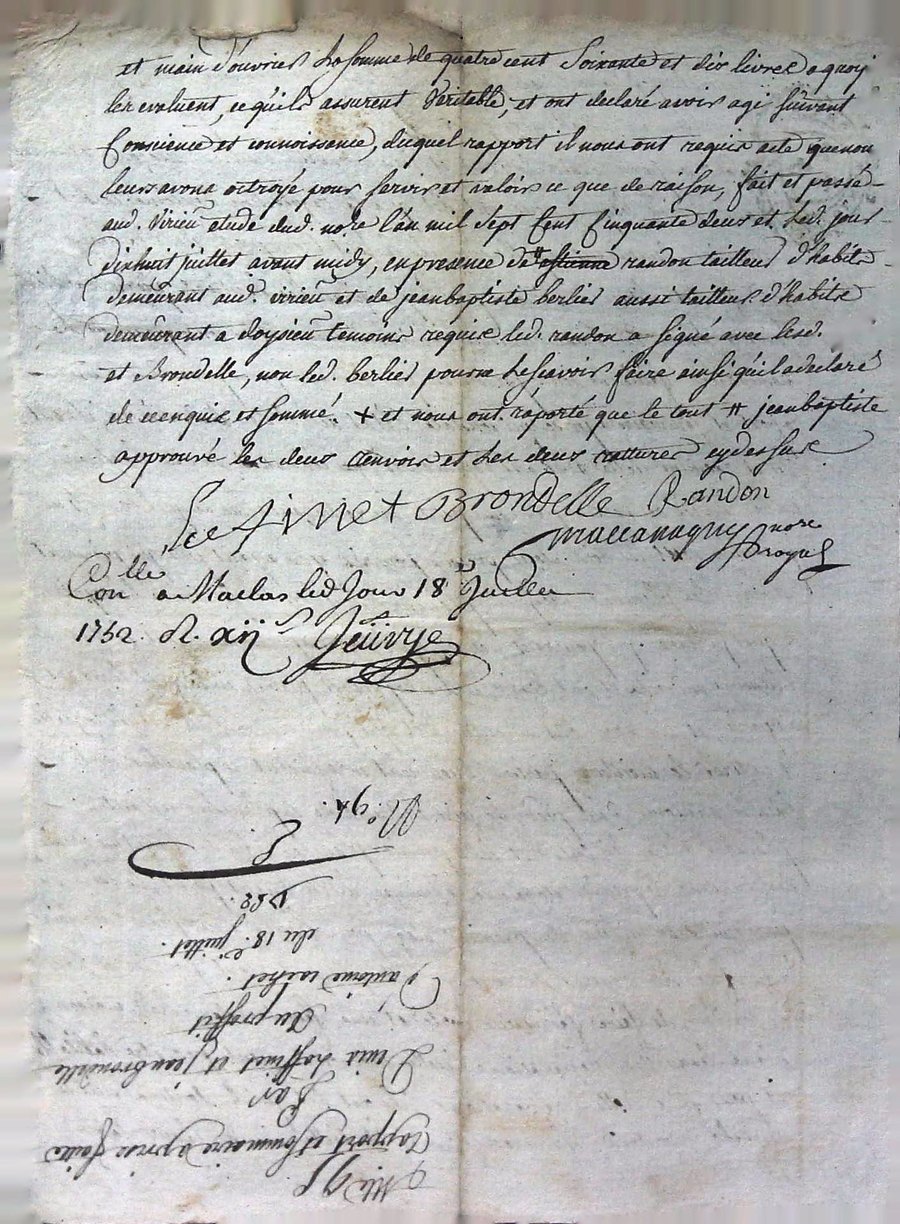 et main d'ouvries la somme de quatre cent soixante et dix livres a quoy
les evaluent, ce quils assurent veritable, et ont declaré avoir agi suivant
Conscience et connoissance, duquel rapport il nous ont requis acte que nou
leurs avons octroyé pour servir et valoir ce que de raison, fait et passé
aud. virieu etude dud. nore l'an mil sept cent cinquante deux et led. jour
dixhuit juillet avant midy, en presence de estienne randon tailleur d'habits
demeurant aud. virieu et de jeanbaptiste berlier aussi tailleur d'habits
demeurant a doysieu temoins requis led. randon a signé avec lesd.
et Brondelle, non led. berlier pour ne le scavoir faire ainsi quil a declaré
de ce enquis et sommé. + et nous ont raporté que le tout # jeanbaptiste
approuvé les deux renvois et les deux rattures cydessus
Brondelle Randon
nore
royal
Conlle a Maclas led Jour 18 Juillet
1752. R. xij s
N.° 94.
1752.
du 18.e juillet
d'antoine
Au proffit
Denis et jean brondelle
Par
Rapport et sommaire aprise faite